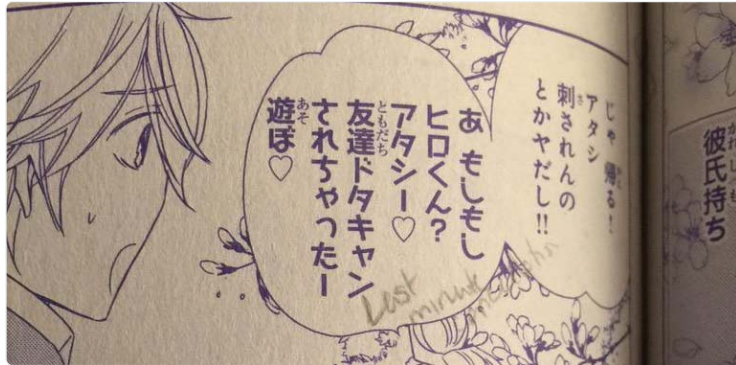 彼氏持ち
じゃ 帰る!
アタシ
刺されんの
とかヤだし!!
あ もしもし
ヒロくん?
アタシー♡
友達ドタキャン
されちゃったー
遊ぼ♡
Last
minute